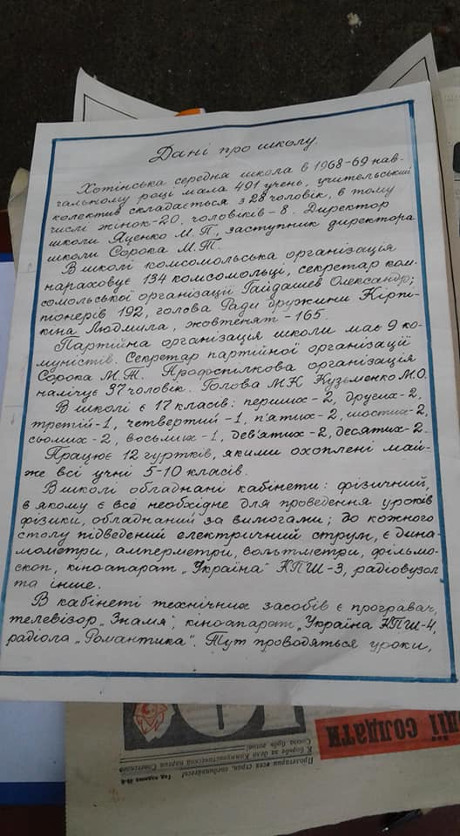 Дані про школу.
Хотінська середня школа в 1968-69 нав-
чальному році мала 491 учень, учительський
колектив складається з 28 чоловік, в тому
числі жінок-20, чоловіків-8. Директор
школи Яценко М.П., заступник директора
школи Сорока М.Т.
В школі комсомольська організація
нараховує 134 комсомольці, секретар ком-
сомольської організації Гайдашев Олександр;
піонерів 192, голова Ради дружини Кирпи-
кіна Людмила, жовтенят-165.
Партійна організація школи має 9 ко-
муністів. Секретар партійної організації
Сорока М.Т. Профспілкова організація
налічує 37 чоловік. Голова М.К Кузьменко М.О.
В школі є 17 класів: перших-2, других-2,
третій-1, четвертий-1, п'ятих-2, шостих-2,
сьомих-2, восьмих-1, дев'ятих-2, десятих-2.
Працює 12 гуртків, якими охоплені май-
же всі учні 5-10 класів.
В школі обладнані кабінети: фізичний,
в якому є все необхідне для проведення уроків
фізики, обладнаний за вимогами; до кожного
столу підведений електричний струм, є дина-
мометри, амперметри, вольтметри, фільмо-
скоп, кіноапарат „Україна" КПШ-3, радіовузол
та інше.
В кабінеті технічних засобів є програвач,
телевізор „Знамя", кіноапарат „Україна КПШ-4,
радіола „Романтика". Тут проводяться уроки,
ДІЇ СОЛДАТИ